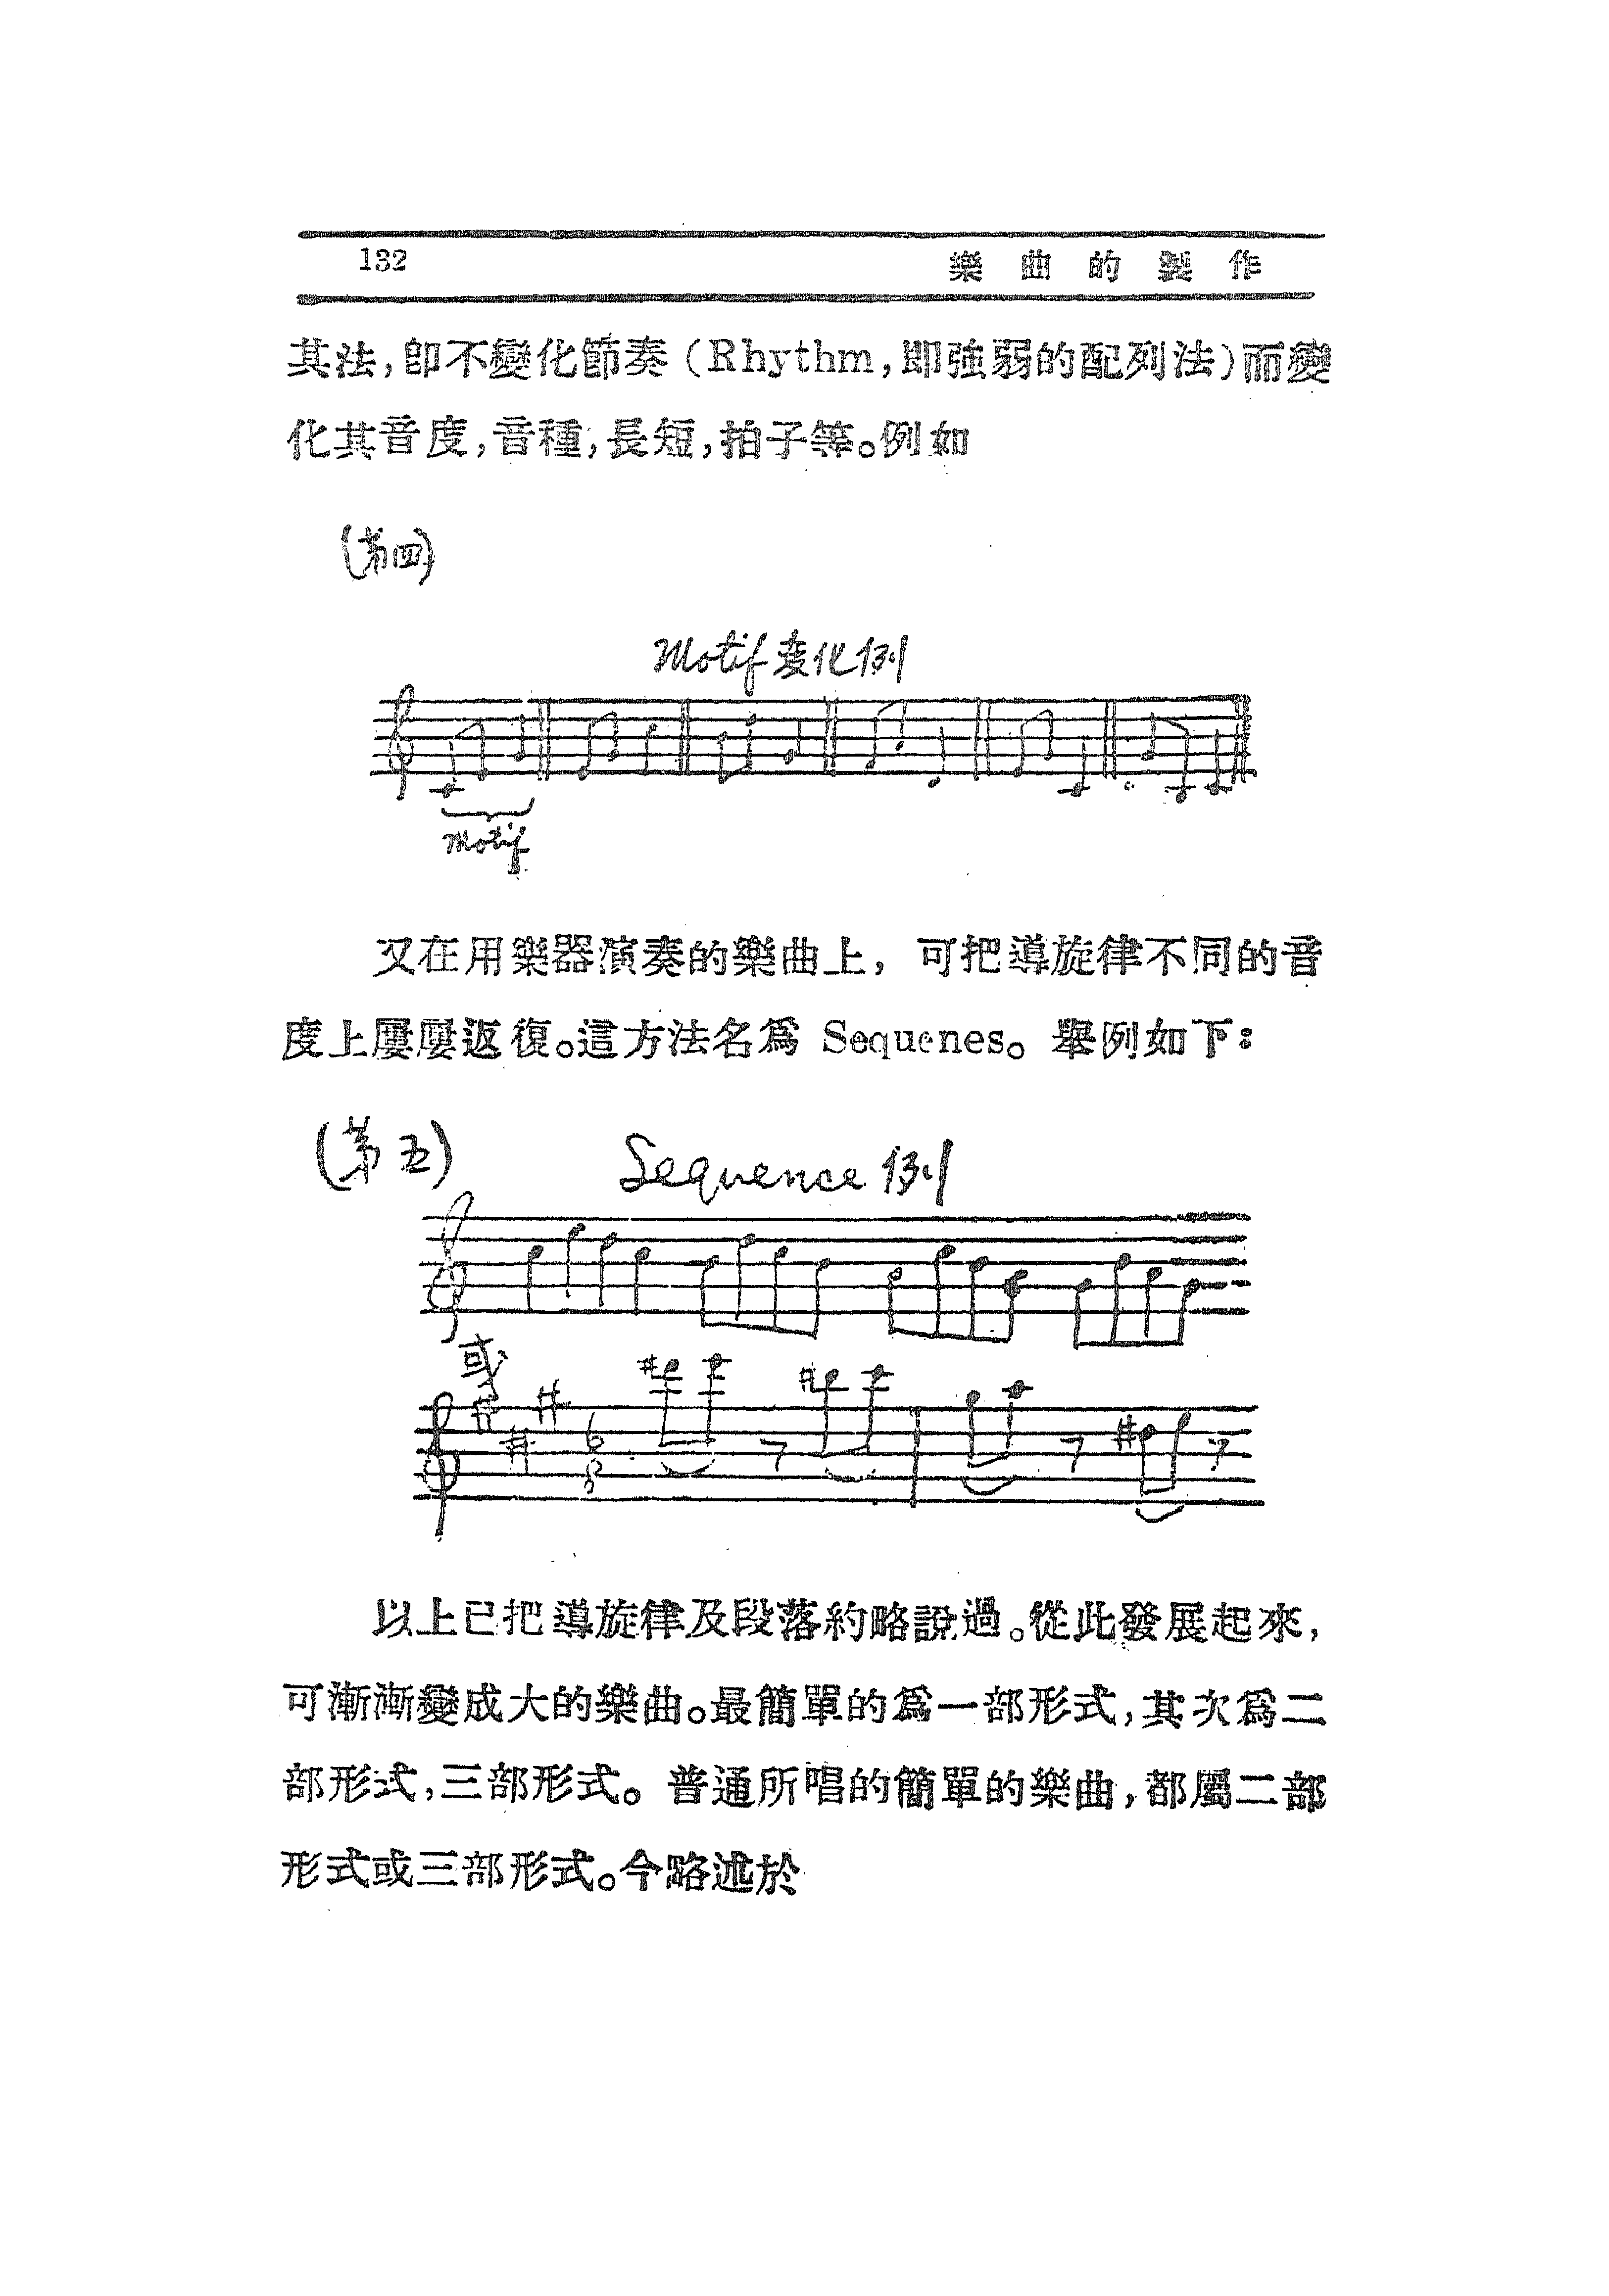 132
樂曲的製作
其法,卽不變化節奏(Rhythm,即強弱的配列法)而變
化其音度,音種,長短,拍子等。例如
(第四)
Motif変化例
Motif
又在用樂器演奏的樂曲上,可把導旋律不同的音
度上屢屢返復。這方法名爲 Sequenes。舉例如下:
(第五)
Sequence 例
或
6
8
以上已把導旋律及段落約略說過。從此發展起來,
可漸漸變成大的樂曲。最簡單的爲一部形式,其次爲二
部形式,三部形式。普通所唱的簡單的樂曲,都屬二部
形式或三部形式。今略述於